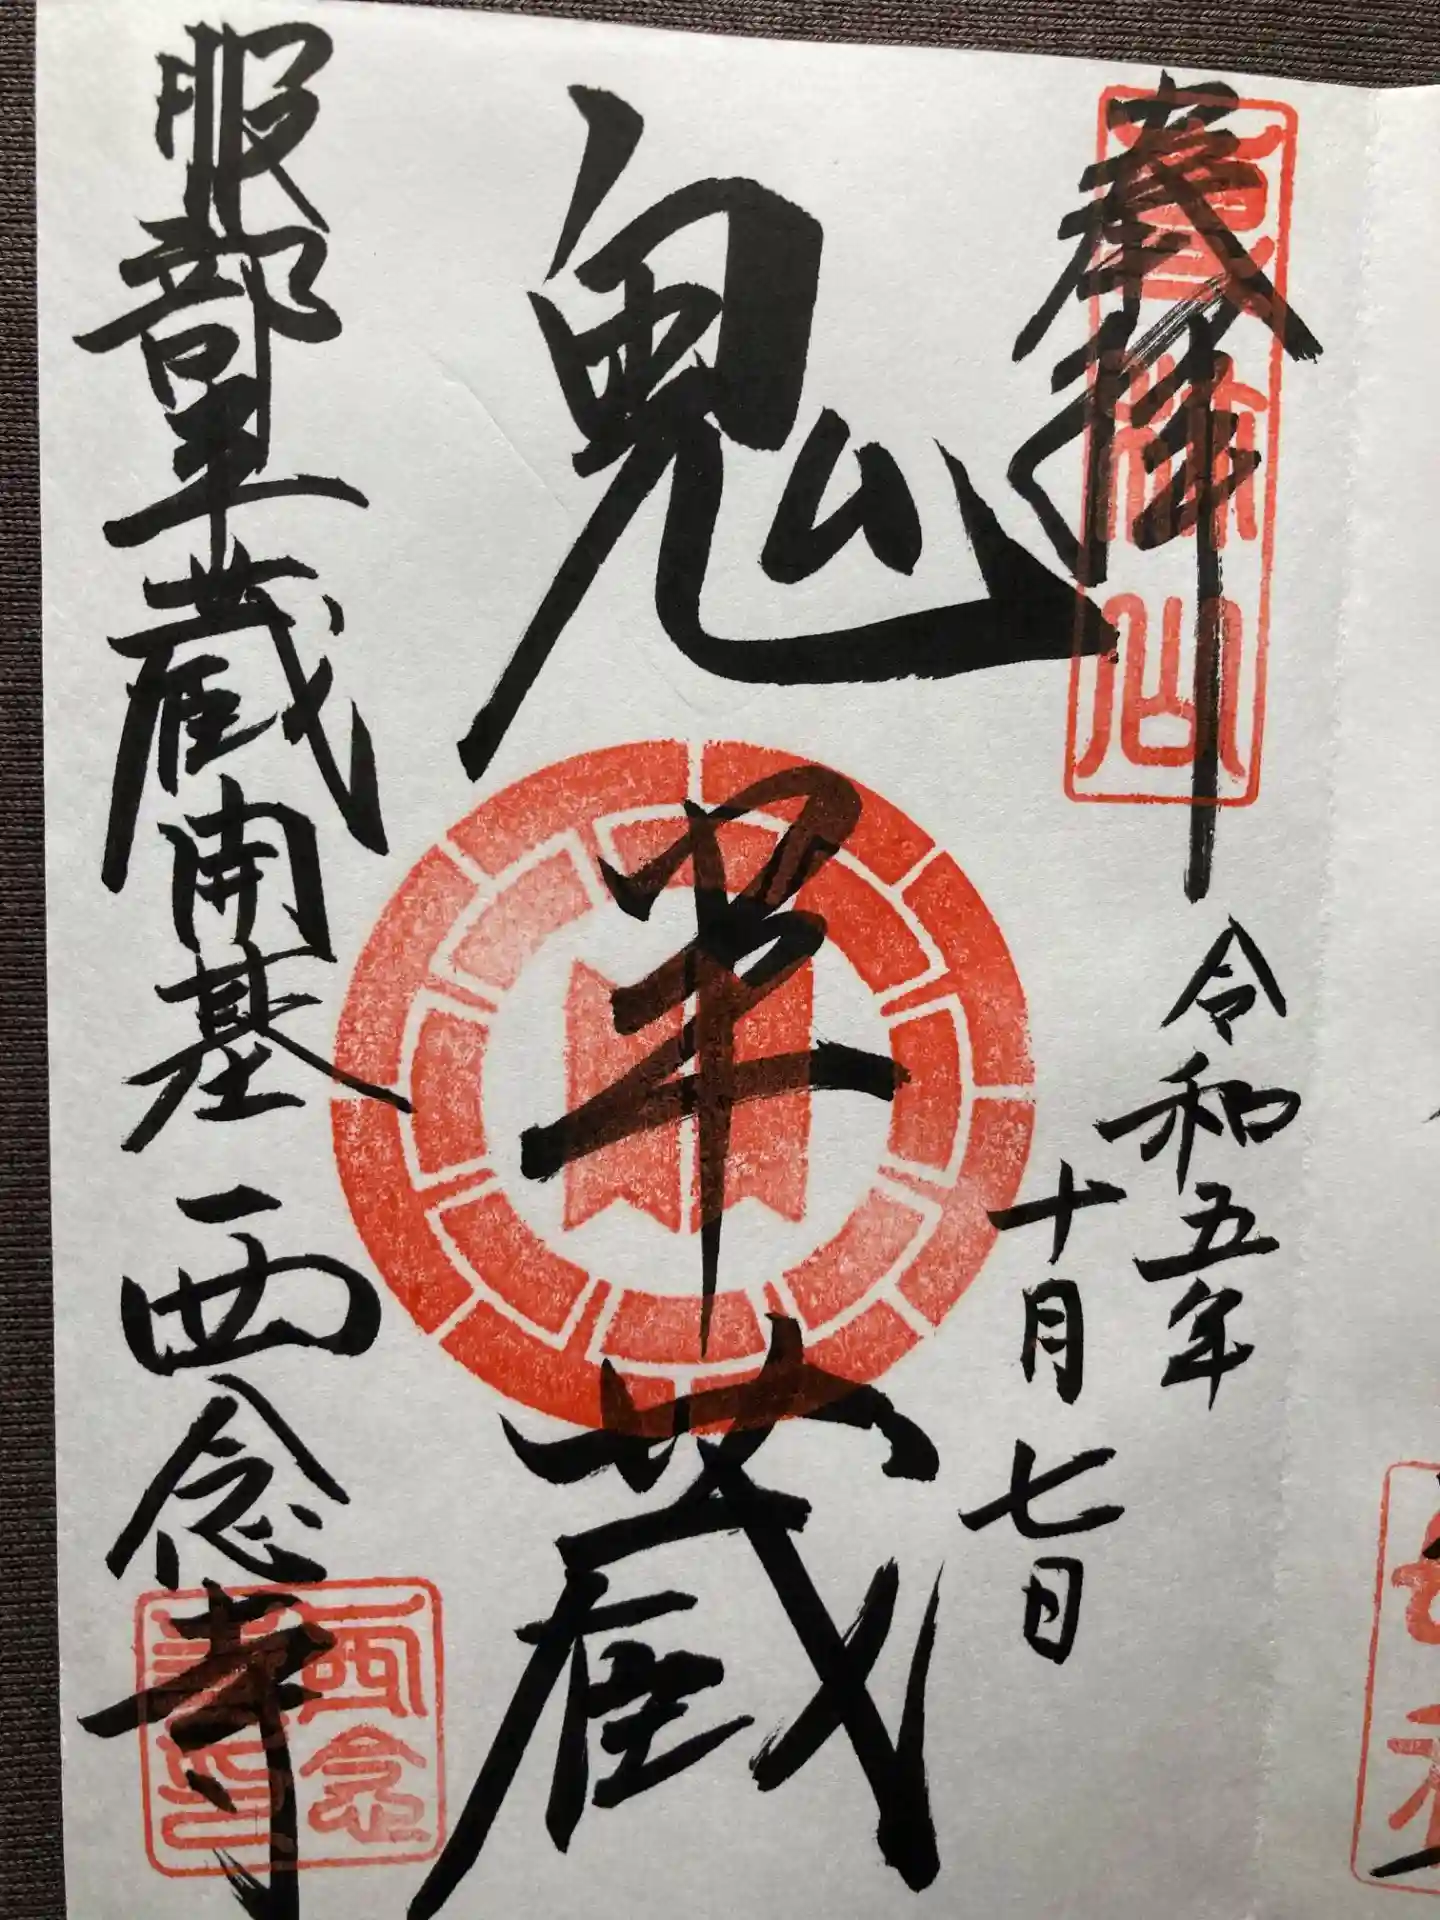 奉拝
令和五年
十月七日
鬼半蔵
服部半蔵開基 西念寺
西念
寺印